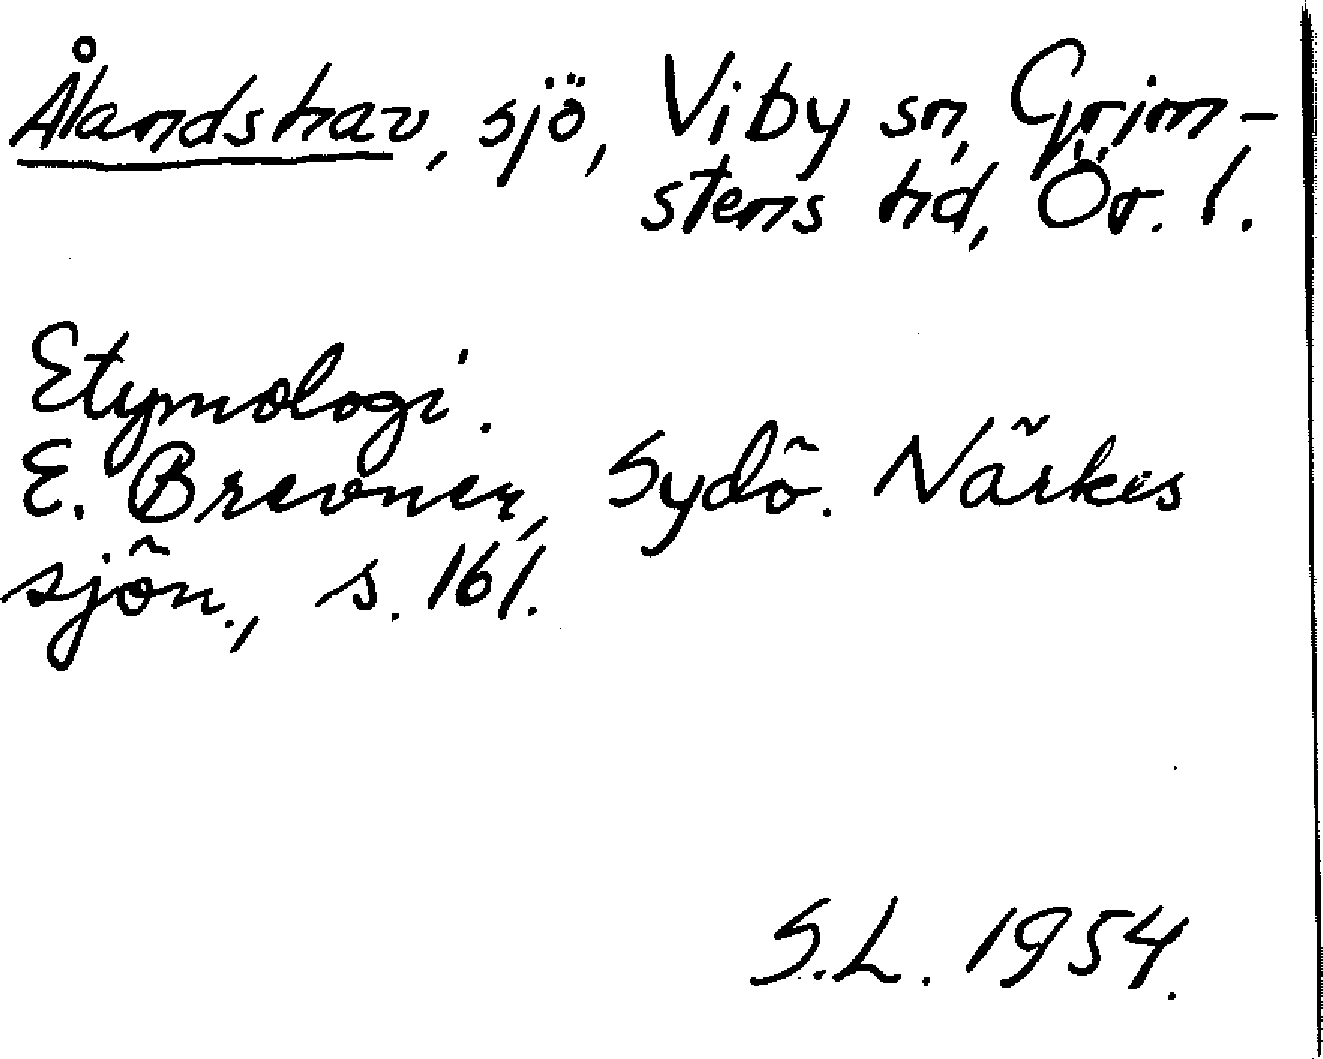 Ålandshav, sjö, Viby sn, Grim-
stens hd, Ör. l.
Etymologi.
E. Brevner, Sydö. Närkes
sjön., s. 161.
S.L. 1954.